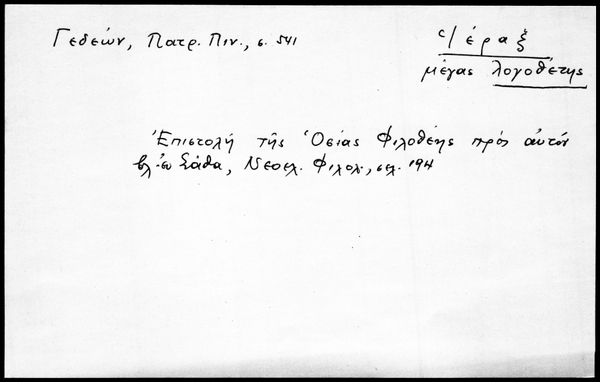 Γεδεών, Πατρ. Πιν., σ. 541
Ἱέραξ
μέγας λογοθέτης
Ἐπιστολή τῆς Ὁσίας Φιλοθέης πρός αὐτόν
βλ. ἐν Σάθα, Νεοελ. Φιλολ., σελ. 194